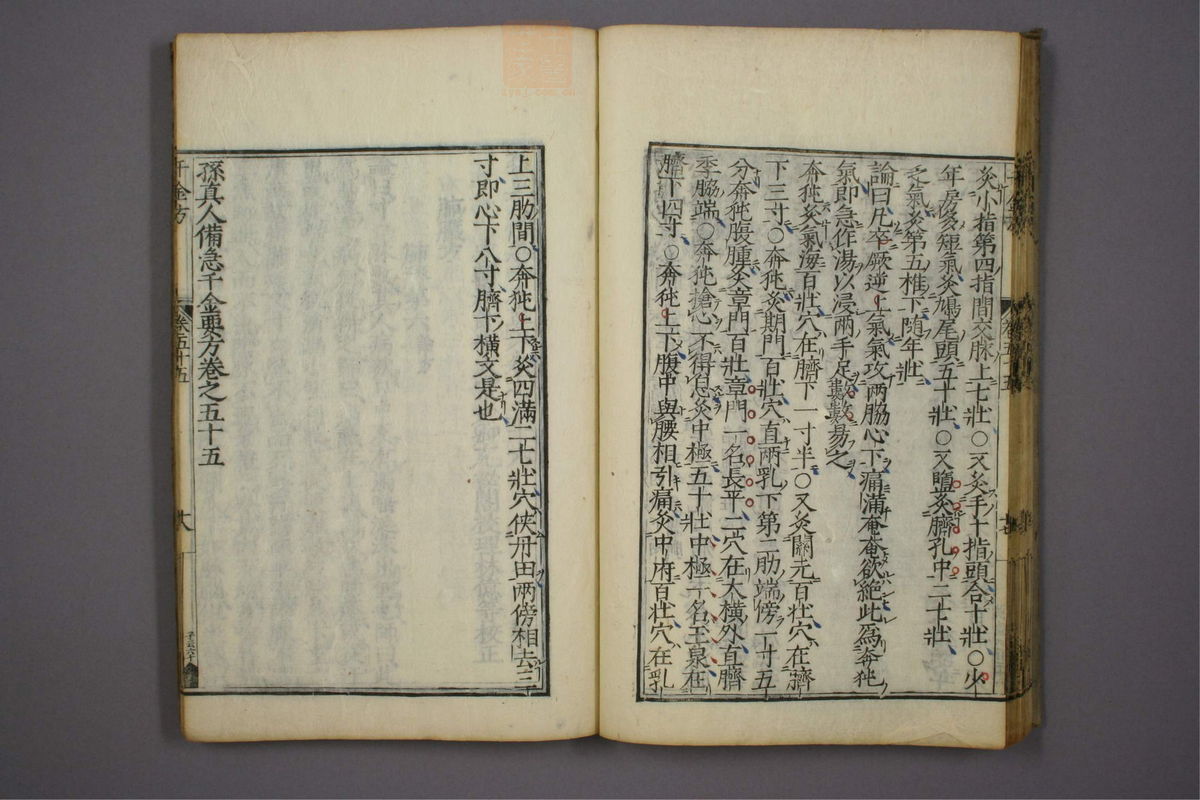 灸小指第四指間交脉上七壯○又灸手十指頭合十壯○少
年房多短氣灸鳩尾頭五十壯○又鹽灸臍孔中二七壯
乏氣灸第五椎下随年壯
論曰凡卒厥逆上氣氣攻兩脇心下痛滿奄奄欲絶此爲奔㹠
氣即急作湯以浸兩手足數數易之
奔㹠灸氣海百壯穴在臍下一寸半○又灸關元百壯穴在臍
下三寸○奔㹠灸期門百壯穴直兩乳下第二肋端傍一寸五
分奔㹠腹腫灸章門百壯章門一名長平二穴在大横外直臍
季脇端○奔㹠搶心不得息灸中極五十壯中極一名玉泉在
臍下四寸○奔㹠上下腹中與腰相引痛灸中府百壯穴在乳
上三肋間○奔㹠上下灸四滿二七壯穴俠丹田兩傍相去三
寸即心下八寸臍下横文是也
孫真人備急千金要方卷之五十五
千金方
卷五十五